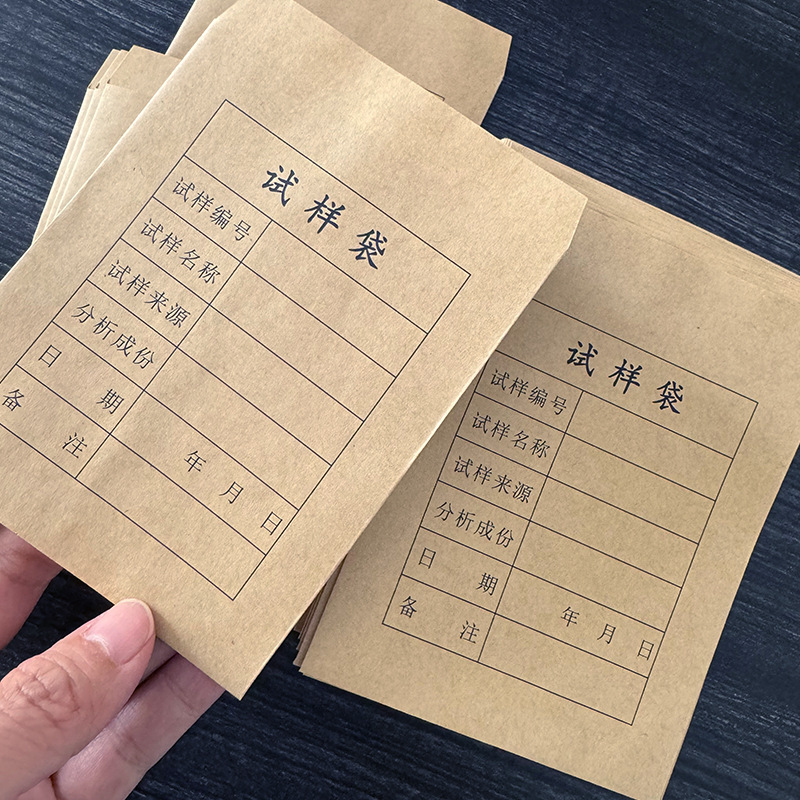 试样袋
试样编号
试样名称
试样来源
分析成份
日 期 年 月 日
备 注
试样袋
试样编号
试样名称
试样来源
分析成份
日 期 年 月 日
备 注